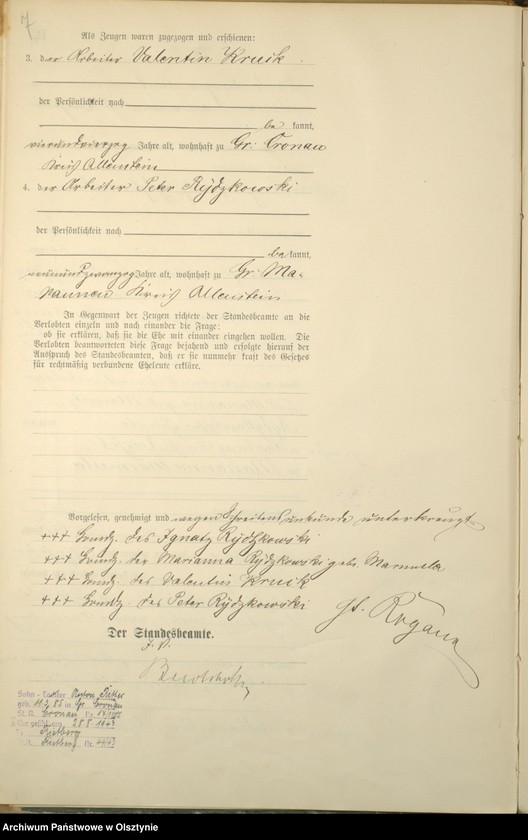 7
Als Zeugen waren zugezogen und erschienen:
3. der Arbeiter Valentin Kruik.
der Persönlichkeit nach
be kannt,
vierundvierzig Jahre alt, wohnhaft zu Gr. Cronau
Kreis Allenstein
4. der Arbeiter Peter Rydzkowski
der Persönlichkeit nach
be kannt,
neunundzwanzig Jahre alt, wohnhaft zu Gr. Ma-
raunen Kreis Allenstein
In Gegenwart der Zeugen richtete der Standesbeamte an die
Verlobten einzeln und nach einander die Frage:
ob sie erklären, daß sie die Ehe mit einander eingehen wollen. Die
Verlobten beantworteten diese Frage bejahend und erfolgte hierauf der
Ausspruch des Standesbeamten, daß er sie nunmehr kraft des Gesetzes
für rechtmäßig verbundene Eheleute erkläre.
Vorgelesen, genehmigt und wegen Schreibens unkunde unterkreuzt
+++ Handz. des Ignatz Rydzkowski
+++ Handz. der Marianna Rydzkowski geb.
+++ Handz. des Valentin Kruik
+++ Handz. des Peter Rydzkowski
Der Standesbeamte.
Sohn - Tochter Anton
geb. in Gr. Cronau
St. A. Cronau Nr.
Nr.
Archiwum Państwowe w Olsztynie